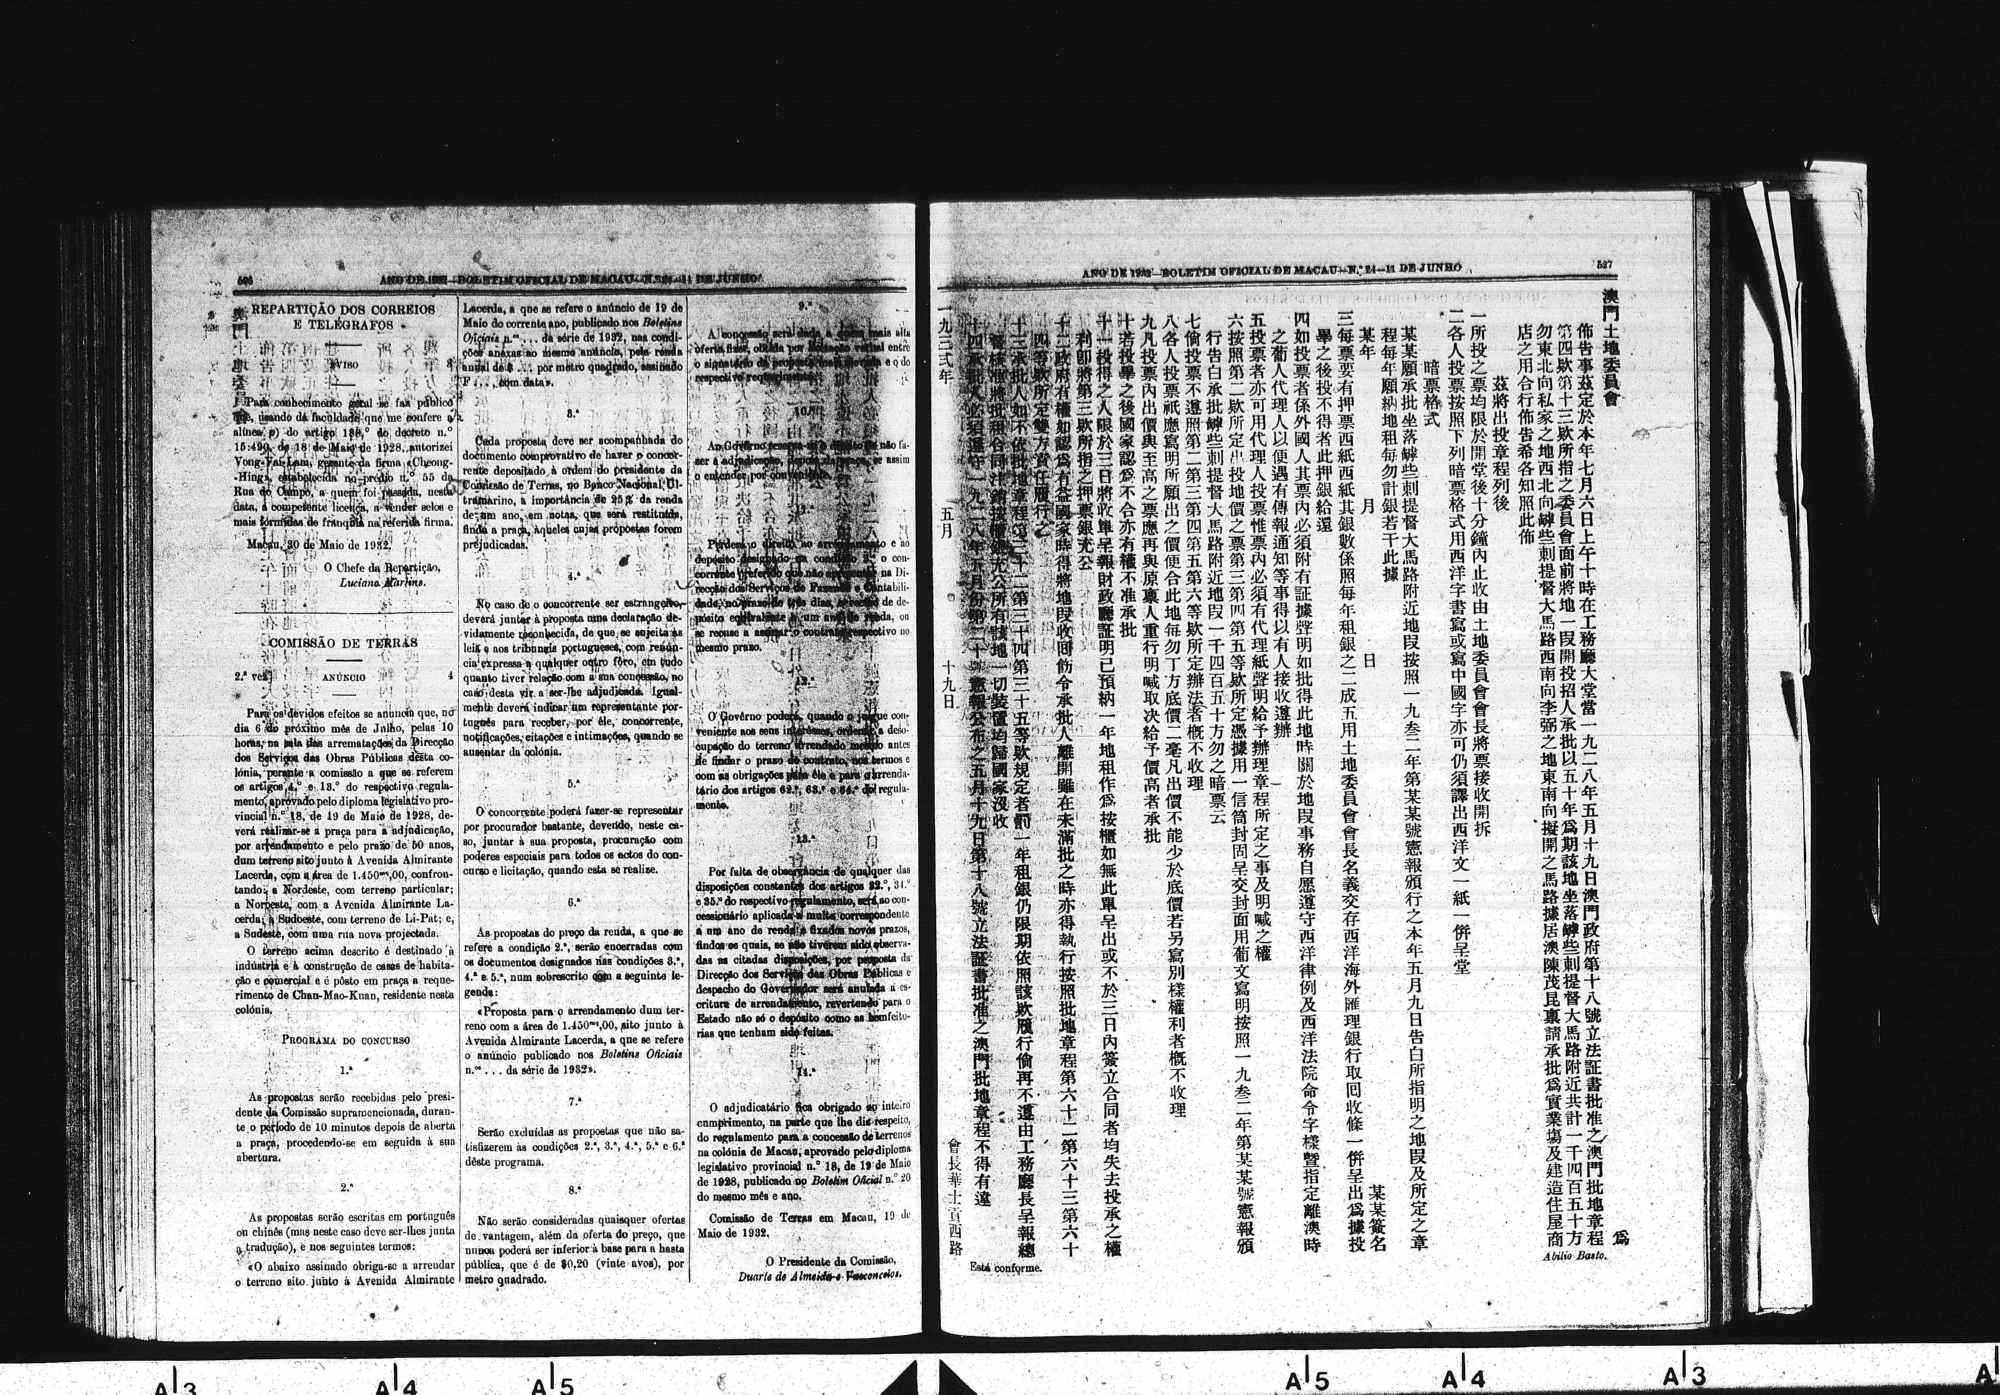 526
ANO DE 1932—BOLETIM OFICIAL DE MACAU—N.º 24—11 DE JUNHO
REPARTIÇÃO DOS CORREIOS
E TELÉGRAFOS
AVISO
Para conhecimento geral se faz público
que, usando da faculdade que me confere a
alínea e) do artigo 136.º do decreto n.º
15:490, de 18 de Maio de 1928, autorizei
Vong-Vai-Lam, gerente da firma «Cheong-
-Hing», estabelecida no prédio n.º 55 da
Rua do Campo, a quem foi passada, nesta
data, a competente licença, a vender selos e
mais fórmulas de franquia na referida firma.
Macau, 30 de Maio de 1932.
O Chefe da Repartição,
Luciano Martins.
COMISSÃO DE TERRAS
2.ª vez
ANÚNCIO
4
Para os devidos efeitos se anuncia que, no
dia 6 do próximo mês de Julho, pelas 10
horas, na sala das arrematações da Direcção
dos Serviços das Obras Públicas desta co-
lónia, perante a comissão a que se referem
os artigos 4.º e 13.º do respectivo regula-
mento, aprovado pelo diploma legislativo pro-
vincial n.º 18, de 19 de Maio de 1928, de-
verá realizar-se a praça para a adjudicação,
por arrendamento e pelo prazo de 50 anos,
dum terreno sito junto à Avenida Almirante
Lacerda, com a área de 1.450mq,00, confron-
tando: a Nordeste, com terreno particular;
a Noroeste, com a Avenida Almirante La-
cerda; a Sudoeste, com terreno de Li-Pat; e,
a Sudeste, com uma rua nova projectada.
O terreno acima descrito é destinado à
indústria e à construção de casas de habita-
ção e comercial e é pôsto em praça a reque-
rimento de Chan-Mao-Kuan, residente nesta
colónia.
PROGRAMA DO CONCURSO
1.ª
As propostas serão recebidas pelo presi-
dente da Comissão supramencionada, duran-
te o período de 10 minutos depois de aberta
a praça, procedendo-se em seguida à sua
abertura.
2.ª
As propostas serão escritas em português
ou chinês (mas neste caso deve ser-lhes junta
a tradução), e nos seguintes termos:
«O abaixo assinado obriga-se a arrendar
o terreno sito junto à Avenida Almirante
Lacerda, a que se refere o anúncio de 19 de
Maio do corrente ano, publicado nos Boletins
Oficiais n.os ... da série de 1932, nas condi-
ções anexas ao mesmo anúncio, pela renda
anual de $ ... por metro quadrado, assinado
F ..., com data».
3.ª
Cada proposta deve ser acompanhada do
documento comprovativo de haver o concor-
rente depositado à ordem do presidente da
Comissão de Terras, no Banco Nacional Ul-
tramarino, a importância de 25% da renda
de um ano, em notas, que será restituída,
finda a praça, àqueles cujas propostas forem
prejudicadas.
4.ª
No caso de o concorrente ser estrangeiro,
deverá juntar à proposta uma declaração de-
vidamente reconhecida, de que se sujeita às
leis e aos tribunais portugueses, com renún-
cia expressa a qualquer outro fôro, em tudo
quanto tiver relação com a sua concessão, no
caso desta vir a ser-lhe adjudicada. Igual-
mente deverá indicar um representante por-
tuguês para receber, por êle, concorrente,
notificações, citações e intimações, quando se
ausentar da colónia.
5.ª
O concorrente poderá fazer-se representar
por procurador bastante, devendo, neste ca-
so, juntar à sua proposta, procuração com
poderes especiais para todos os actos do con-
curso e licitação, quando esta se realize.
6.ª
As propostas do preço da renda, a que se
refere a condição 2.ª, serão encerradas com
os documentos designados nas condições 3.ª,
4.ª e 5.ª, num sobrescrito com a seguinte le-
genda:
«Proposta para o arrendamento dum ter-
reno com a área de 1.450mq,00, sito junto à
Avenida Almirante Lacerda, a que se refere
o anúncio publicado nos Boletins Oficiais
n.os ... da série de 1932».
7.ª
Serão excluídas as propostas que não sa-
tisfizerem às condições 2.ª, 3.ª, 4.ª, 5.ª e 6.ª
dêste programa.
8.ª
Não serão consideradas quaisquer ofertas
de vantagem, além da oferta do preço, que
nunca poderá ser inferior à base para a hasta
pública, que é de $0,20 (vinte avos), por
metro quadrado.
9.ª
A concessão será dada a quem mais alta
oferta fizer, obtida por licitação verbal entre
o signatário da proposta mais elevada e o do
respectivo requerimento.
10.ª
Ao Govêrno reserva-se o direito de não fa-
zer a adjudicação, depois da praça, se assim
o entender por conveniente.
11.ª
Perderá o direito ao arrendamento e ao
depósito designado na condição 3.ª o con-
corrente preferido que não apresente na Di-
recção dos Serviços de Fazenda e Contabili-
dade, no prazo de três dias, a prova de de-
pósito equivalente a um ano de renda, ou
se recuse a assinar o contrato respectivo no
mesmo prazo.
12.ª
O Govêrno poderá, quando o julgue con-
veniente aos seus interêsses, ordenar a deso-
cupação do terreno arrendado mesmo antes
de findar o prazo do contrato, nos termos e
com as obrigações para êle e para o arrenda-
tário dos artigos 62.º, 63.º e 64.º do regula-
mento.
13.ª
Por falta de observância de qualquer das
disposições constantes dos artigos 32.º, 34.º
e 35.º do respectivo regulamento, será ao con-
cessionário aplicada a multa correspondente
a um ano de renda e fixados novos prazos,
findos os quais, se não tiverem sido observa-
das as citadas disposições, por proposta da
Direcção dos Serviços das Obras Públicas e
despacho do Governador será anulada a es-
critura de arrendamento, revertendo para o
Estado não só o depósito como as bemfeito-
rias que tenham sido feitas.
14.ª
O adjudicatário fica obrigado ao inteiro
cumprimento, na parte que lhe diz respeito,
do regulamento para a concessão de terrenos
na colónia de Macau, aprovado pelo diploma
legislativo provincial n.º 18, de 19 de Maio
de 1928, publicado no Boletim Oficial n.º 20
do mesmo mês e ano.
Comissão de Terras em Macau, 19 de
Maio de 1932.
O Presidente da Comissão,
Duarte de Almeida e Vasconcelos.
ANO DE 1932—BOLETIM OFICIAL DE MACAU—N.º 24—11 DE JUNHO
527
澳門土地委員會 爲
佈告事茲定於本年七月六日上午十時在工務廳大堂當一九二八年五月十九日澳門政府第十八號立法証書批准之澳門批地章程
第四欵第十三欵所指之委員會面前將地一叚開投招人承批以五十年爲期該地坐落罅些刺提督大馬路附近共計一千四百五十方
勿東北向私家之地西北向罅些刺提督大馬路西南向李弼之地東南向擬開之馬路據居澳陳茂昆稟請承批爲實業塲及建造住屋商
店之用合行佈告希各知照此佈
茲將出投章程列後
一所投之票均限於開堂後十分鐘內止收由土地委員會會長將票接收開拆
二各人投票按照下列暗票格式用西洋字書寫或寫中國字亦可仍須譯出西洋文一紙一併呈堂
暗票格式
某某願承批坐落罅些刺提督大馬路附近地叚按照一九叁二年第某某號憲報頒行之本年五月九日告白所指明之地叚及所定之章
程每年願納地租每勿計銀若干此據
某年 月 日 某某簽名
三每票要有押票西紙西紙其銀數係照每年租銀之二成五用土地委員會會長名義交存西洋海外匯理銀行取囘收條一併呈出爲據投
擧之後投不得者此押銀給還
四如投票者係外國人其票內必須附有証據聲明如批得此地時關於地叚事務自愿遵守西洋律例及西洋法院命令字樣暨指定離澳時
之葡人代理人以便遇有傳報通知等事得以有人接收遵辦
五投票者亦可用代理人投票惟票內必須有代理紙聲明給予辦理章程所定之事及明喊之權
六按照第二欵所定出投地價之票第三第四第五等欵所定憑據用一信筒封固呈交封面用葡文寫明按照一九叁二年第某某號憲報頒
行告白承批罅些刺提督大馬路附近地叚一千四百五十方勿之暗票云
七倘投票不遵照第二第三第四第五第六等欵所定辦法者槪不收理
八各人投票祇應寫明所願出之價便合此地每勿丁方底價二毫凡出價不能少於底價若另寫別樣權利者槪不收理
九凡投票內出價與至高之票應再與原稟人重行明喊取決給予價高者承批
十若投擧之後國家認爲不合亦有權不准承批
十一投得之人限於三日將收單呈報財政廳証明已預納一年地租作爲按櫃如無此單呈出或不於三日內簽立合同者均失去投承之權
利卽將第三欵所指之押票銀充公
十二政府有權如認爲有益國家時得將地叚收囘飭令承批人離開雖在未滿批之時亦得執行按照批地章程第六十二第六十三第六十
四等欵所定雙方責任履行之
十三承批人如不依批地章程第三十二第三十四第三十五等欵規定者罰一年租銀仍限期依照該欵履行倘再不遵由工務廳長呈報總
督核准將批租合同注銷按櫃銀充公所有該地一切裝置均歸國家沒收
十四承批人必須遵守一九二八年五月份第二十號憲報公布之五月十九日第十八號立法証書批准之澳門批地章程不得有違
一九三弍年 五月 十九日 會長華士貢西路
Está conforme.
Abílio Basto.
A|3
A|4
A|5
A|5
A|4
A|3
A